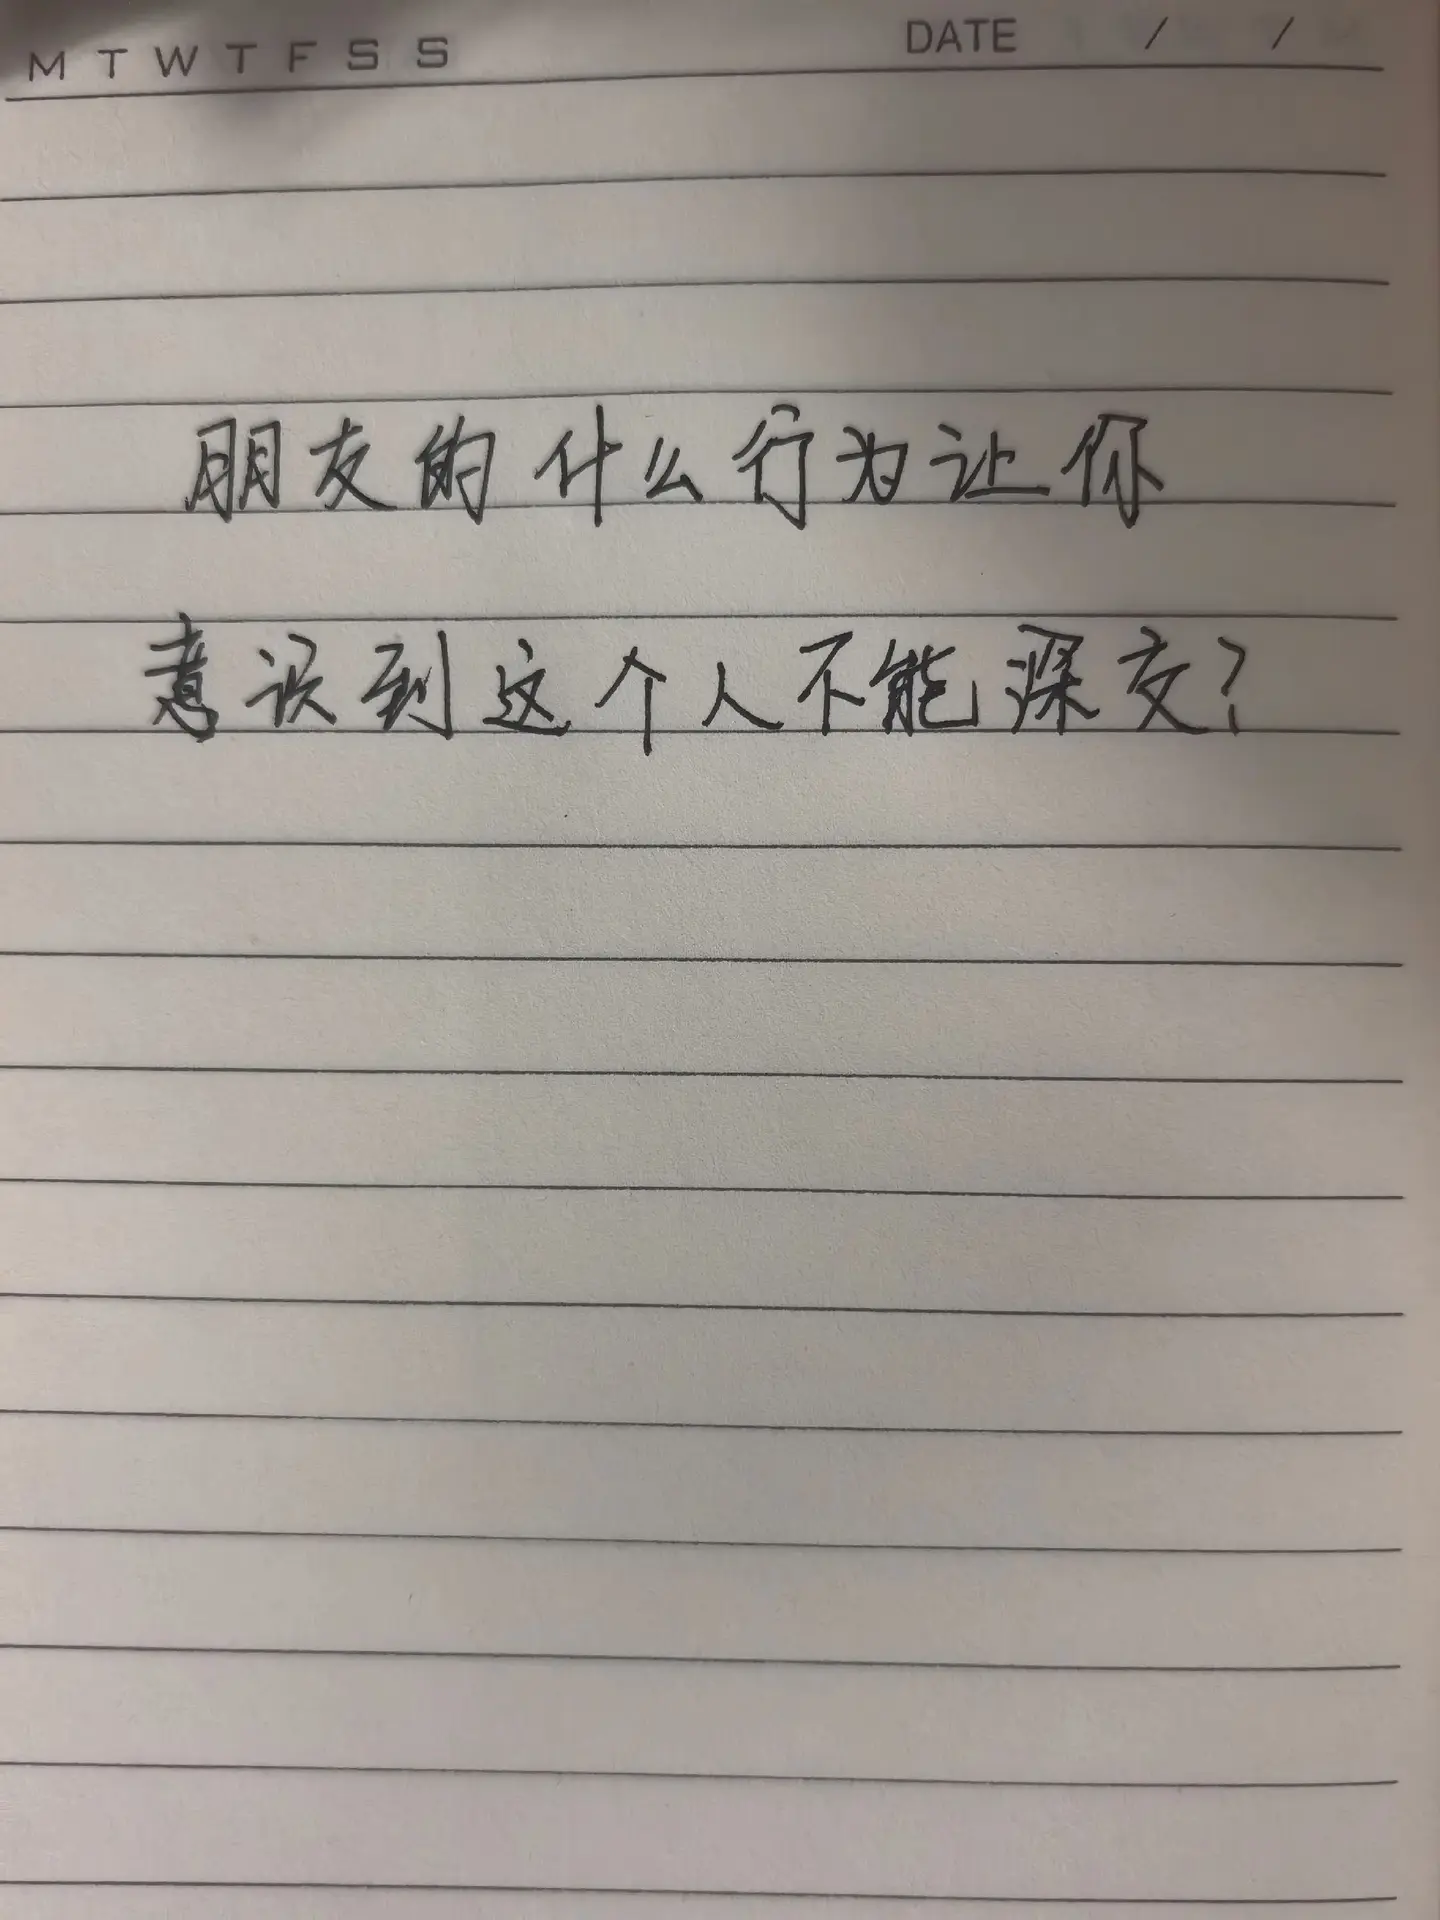 M T W T F S S DATE / /
朋友的什么行为让你
意识到这个人不能深交?